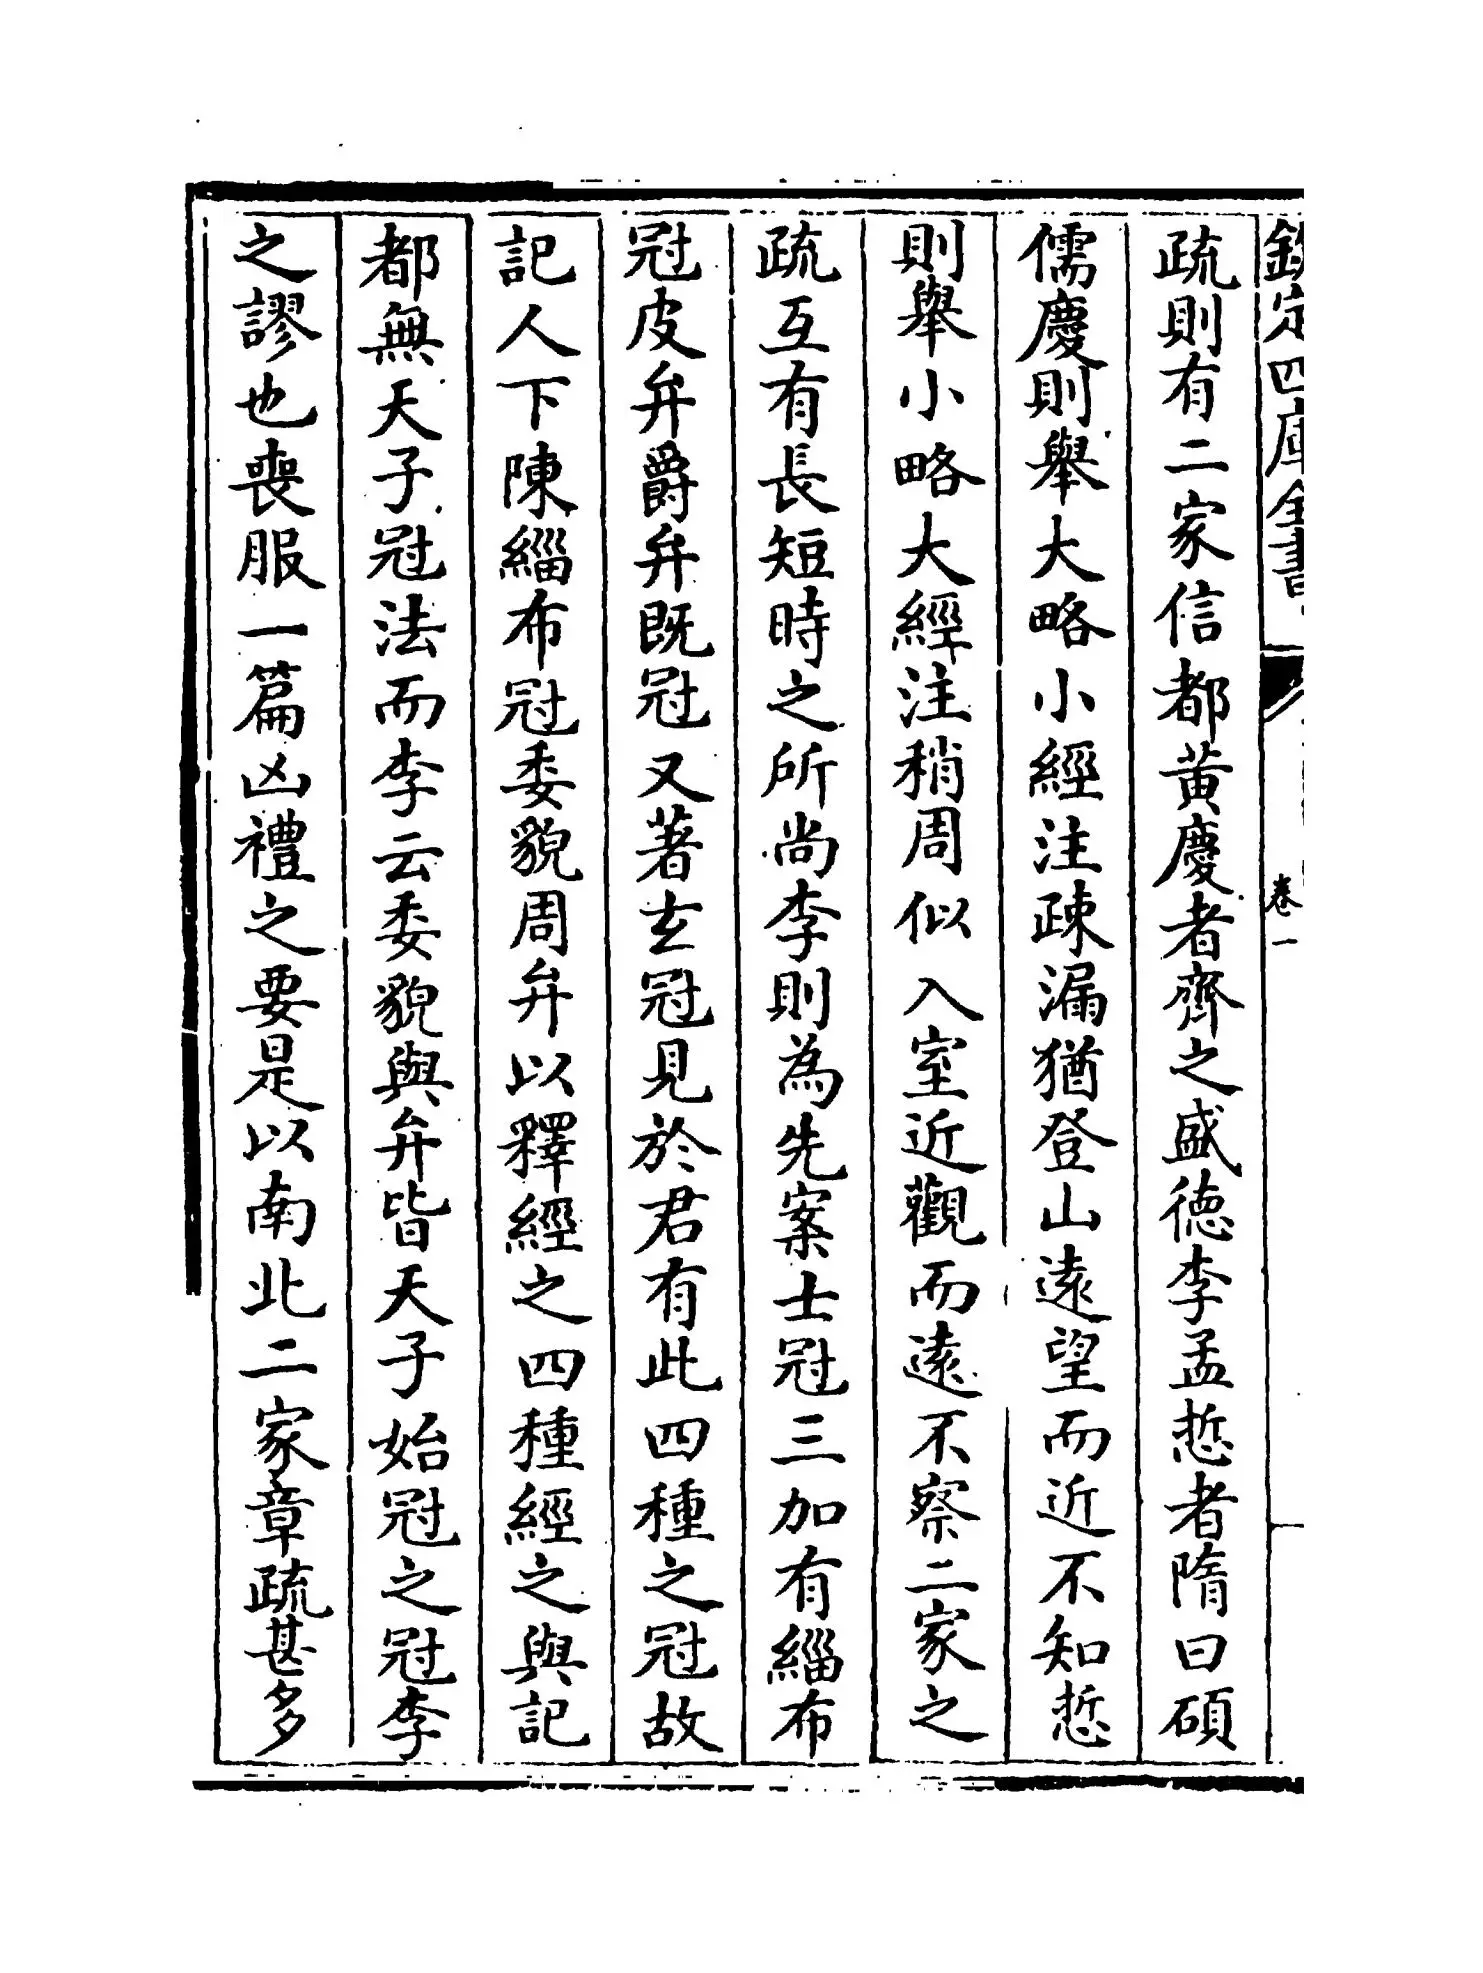 欽定四庫全書
卷一
疏則有二家信都黄慶者齊之盛徳李孟悊者隋曰碩
儒慶則舉大略小經注疎漏猶登山逺望而近不知悊
則舉小略大經注稍周似入室近觀而逺不察二家之
疏互有長短時之所尚李則為先案士冠三加有緇布
冠皮弁爵弁既冠又著玄冠見於君有此四種之冠故
記人下陳緇布冠委貌周弁以釋經之四種經之與記
都無天子冠法而李云委貌與弁皆天子始冠之冠李
之謬也喪服一篇凶禮之要是以南北二家章疏甚多